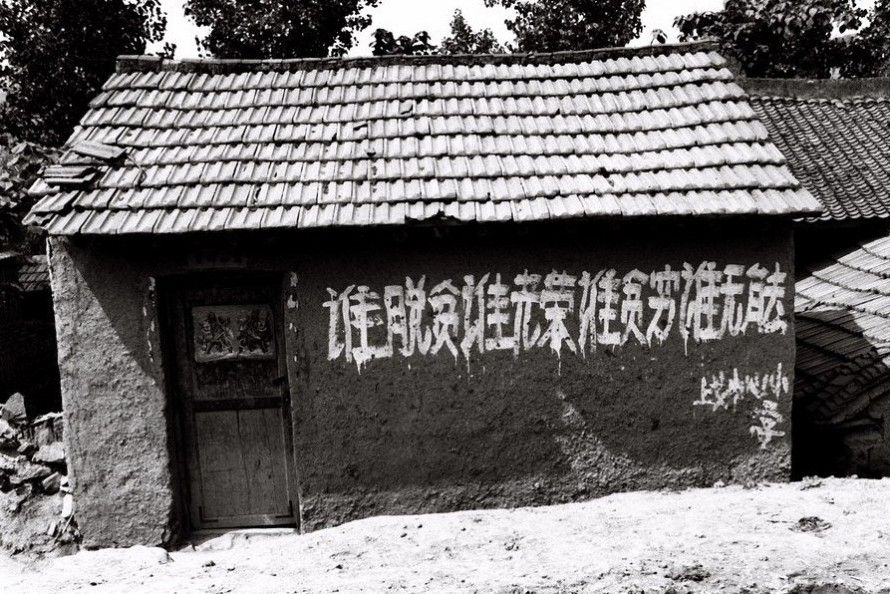 谁脱贫谁光荣谁贫穷谁无能
中心小
学